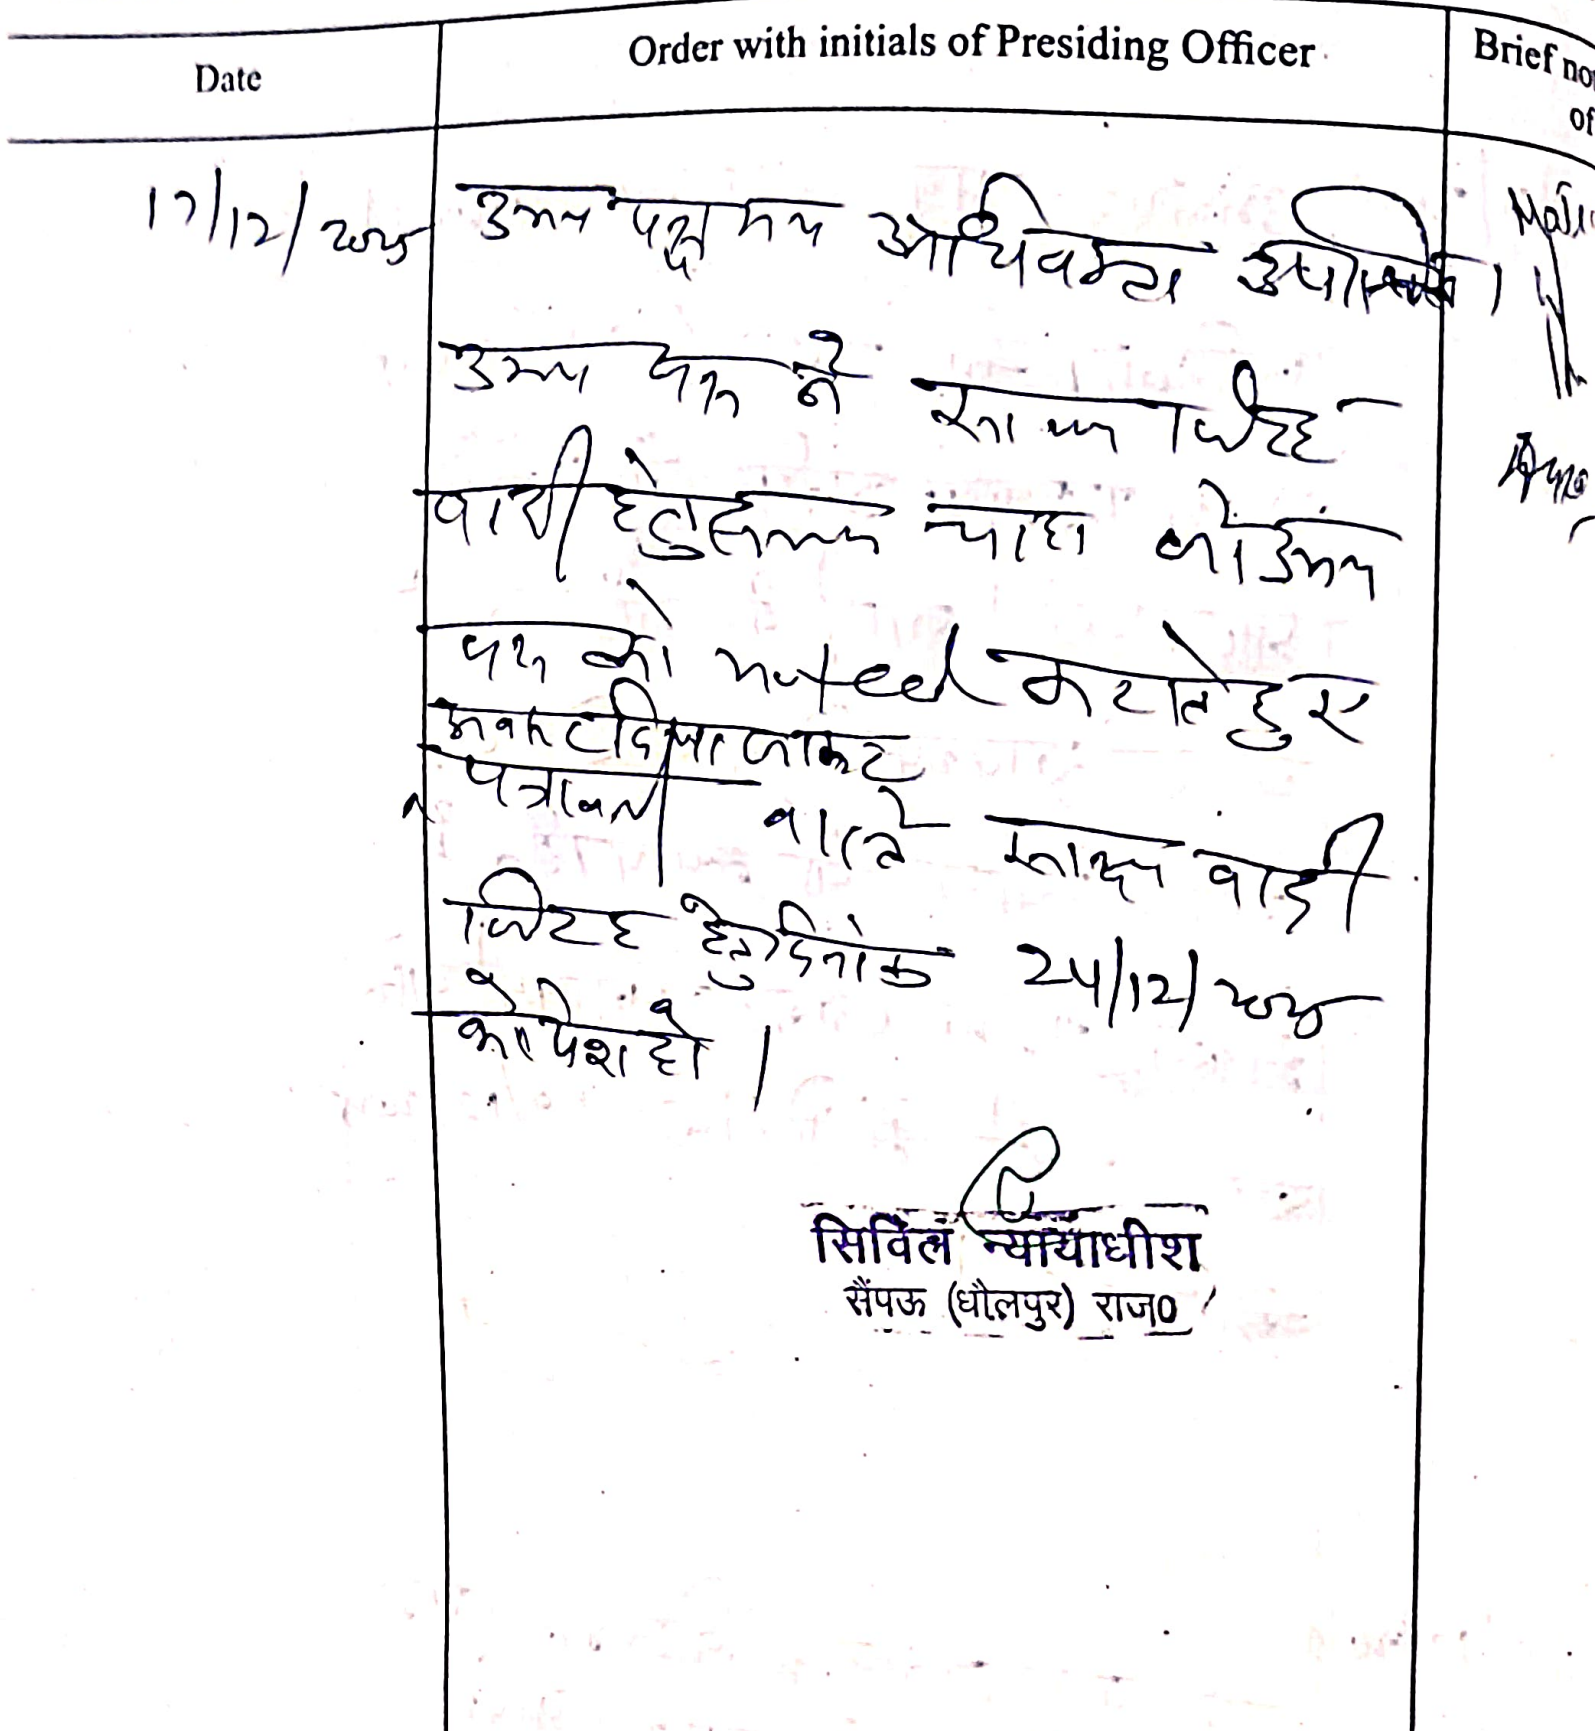 Date
Order with initials of Presiding Officer
Brief
of
17/12/2025 उभय पक्ष मय अधिवक्ता उपस्थित।
उभय पक्ष ने साक्ष्य जिरह
वादी हेतु समय चाहा जो उभय
पक्ष को noted कराते हुए
अवसर दिया जाकर
पत्रावली वास्ते साक्ष्य वादी
जिरह हेतु दिनांक 24/12/2025
को पेश हो।
सिविल न्यायाधीश
सैंपऊ (धौलपुर) राज0